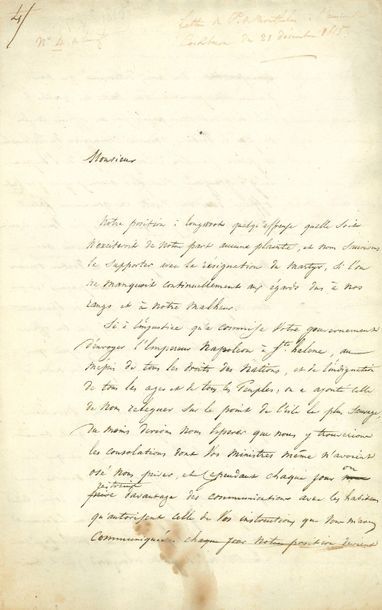 4/
N° 4
Lettre de
du 21 décembre 1815
Monsieur
Notre position à longwood quelqu'affreuse quelle soit
n'exciterait de notre part aucune plainte, et nous saurions
la supporter avec la résignation de martyrs, si l'on
ne manquait continuellement aux égards dus à nos
rangs et à notre malheur.
Si à l'injustice qu'a commise votre gouvernement
d'envoyer l'Empereur Napoléon à Ste hélène, au
mépris de tous les droits des Nations, et de l'indignation
de tous les ages et de tous les Peuples, on a ajouté celle
de nous releguer sur le point de l'isle le plus sauvage,
du moins devions nous esperer que nous y trouverions
les consolations dont vos ministres même n'avaient
osé nous priver, et cependant chaque jour on
prive davantage des communications avec les habitans
qu'autorisent celle de vos instructions que vous m'avez
communiquées chaque jour notre position devient